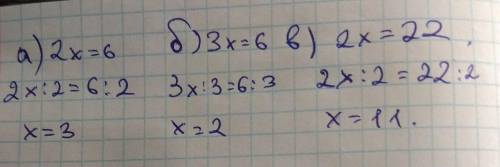 а) 2x=6 б) 3x=6 в) 2x=22.
2x:2=6:2 3x:3=6:3 2x:2=22:2
x=3 x=2 x=11.